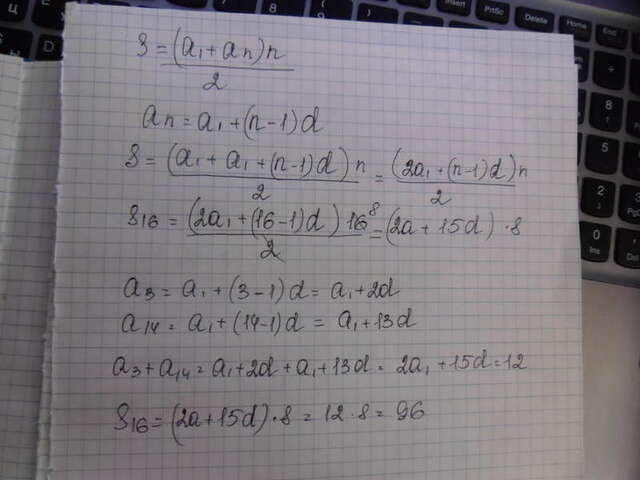 Insert PrtSc Delete Home End
S = (a₁ + an)n / 2
an = a₁ + (n-1)d
S = (a₁ + a₁ + (n-1)d)n / 2 = (2a₁ + (n-1)d)n / 2
S₁₆ = (2a₁ + (16-1)d)16⁸ / 2 = (2a + 15d) · 8
a₃ = a₁ + (3-1)d = a₁ + 2d
a₁₄ = a₁ + (14-1)d = a₁ + 13d
a₃ + a₁₄ = a₁ + 2d + a₁ + 13d = 2a₁ + 15d = 12
S₁₆ = (2a + 15d) · 8 = 12 · 8 = 96